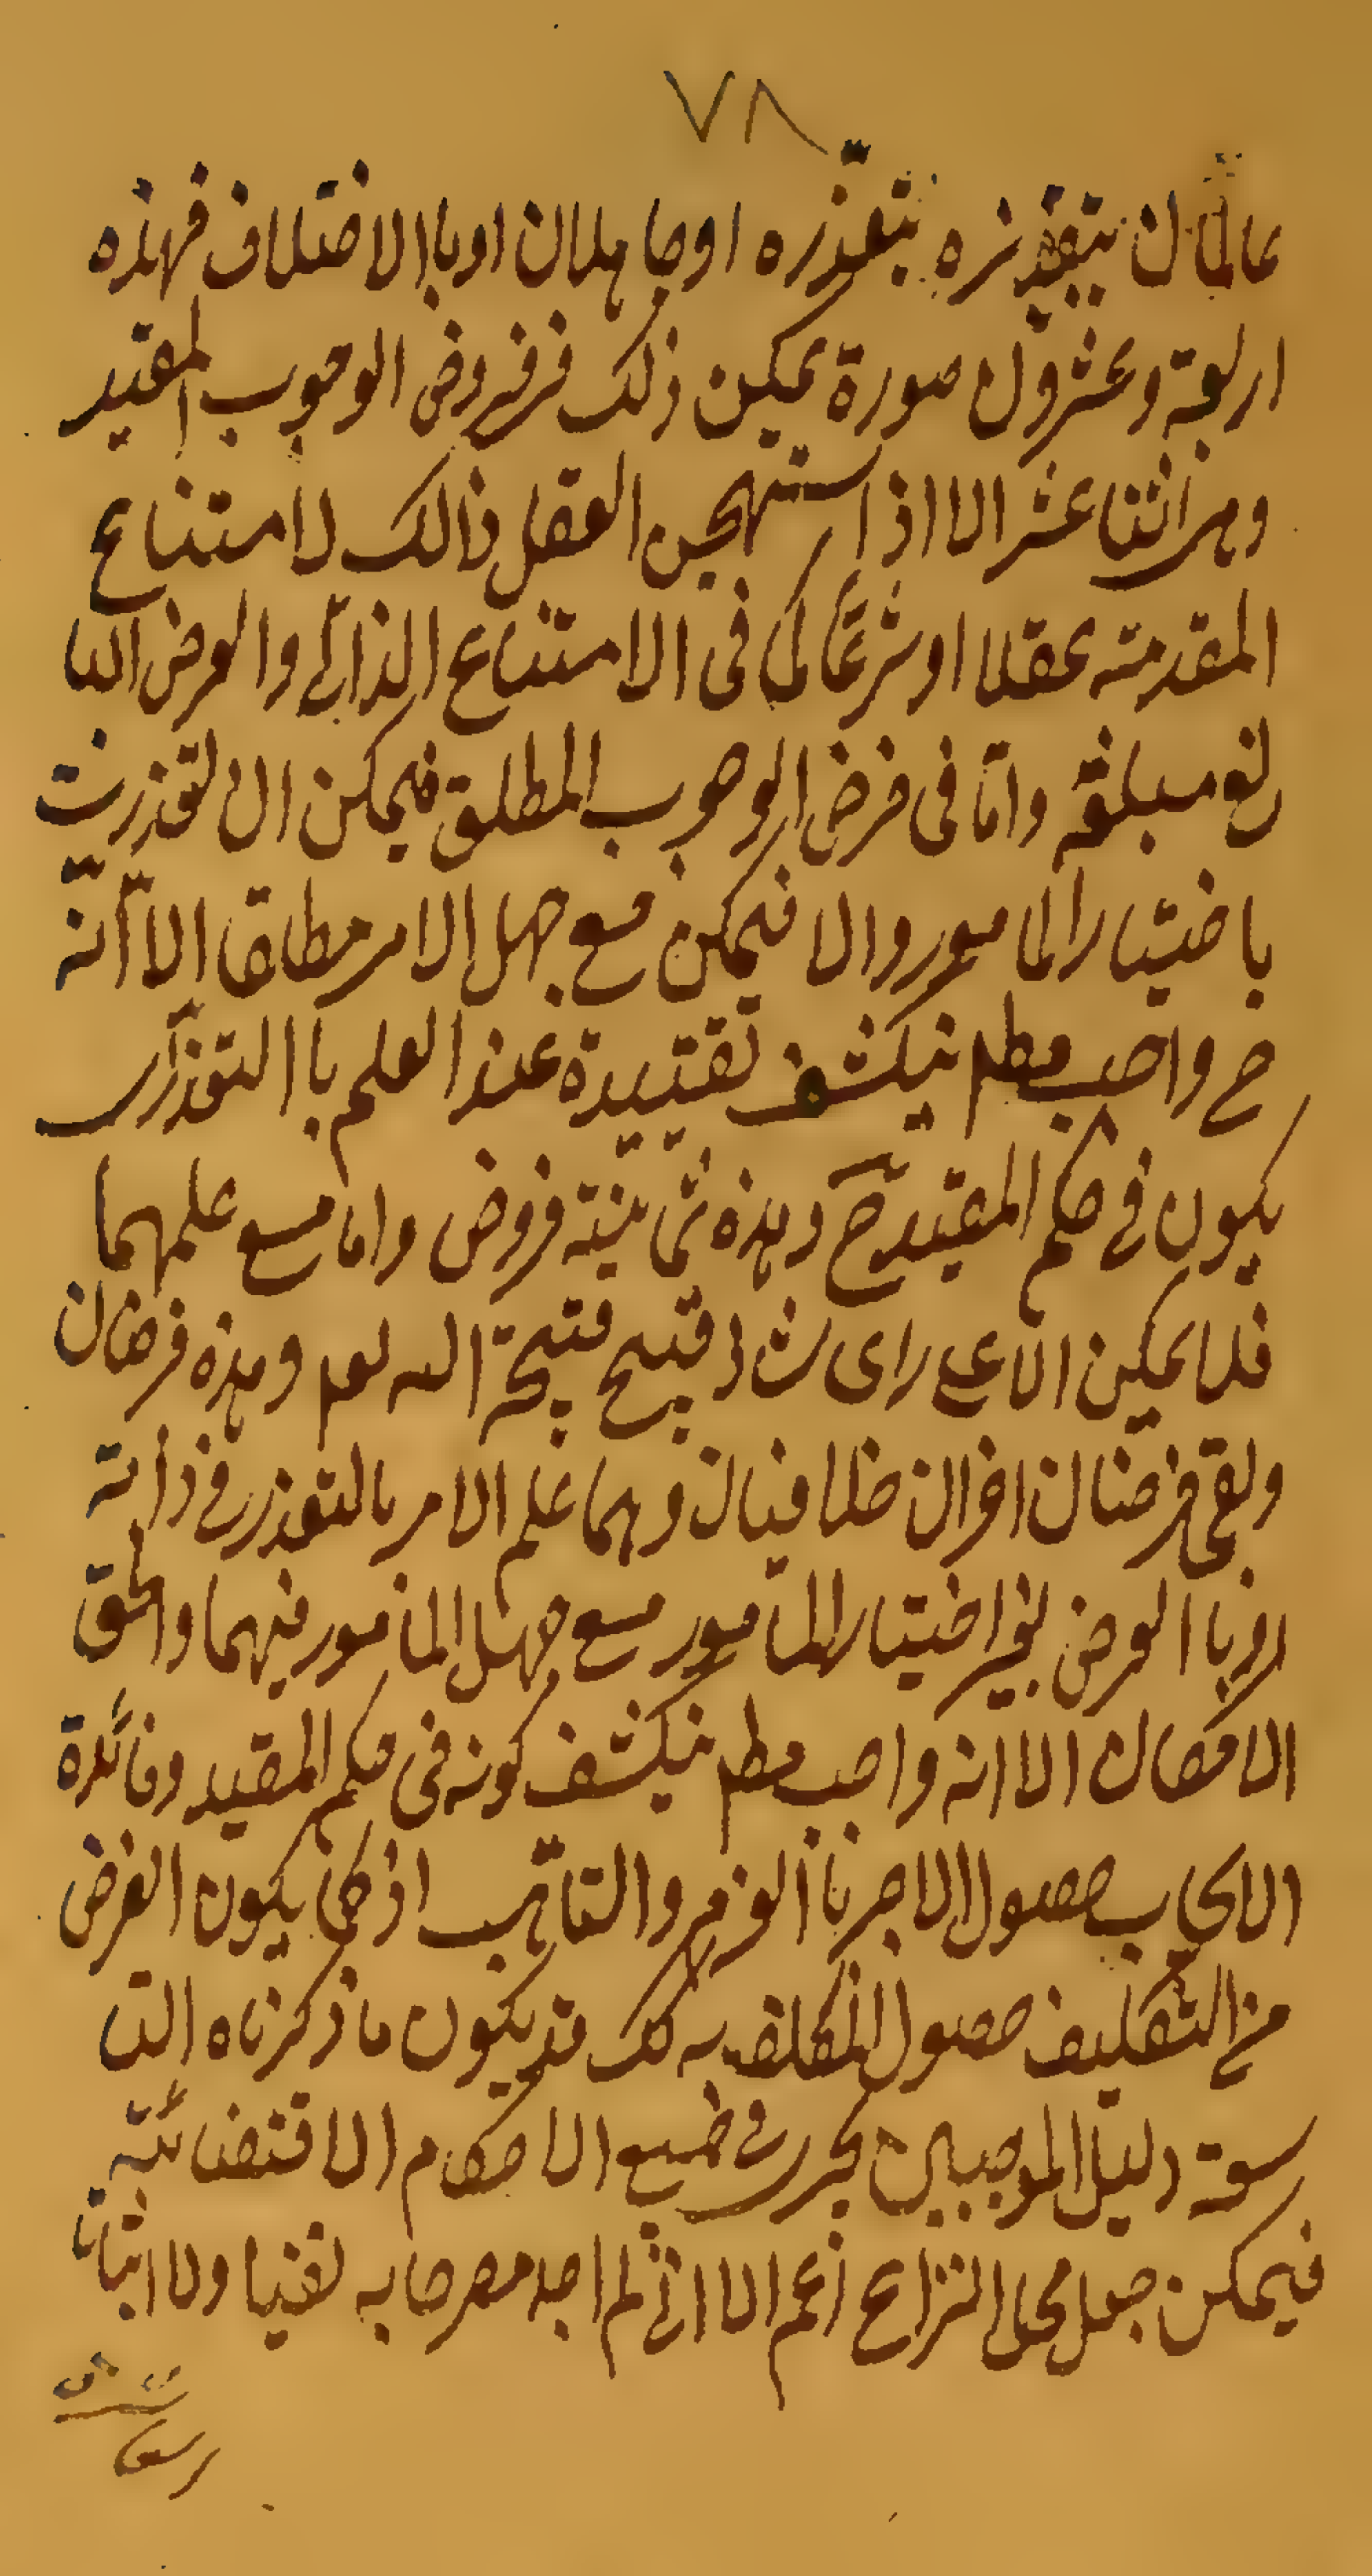 ٧٨
عالمان بتعذره او جاهلان او با الاختلاف فهذه
اربعة وعشرون صورة يمكن ذلك فى فروض الوجوب المقيد
وهى اثنا عشر الا اذا استهجن العقل ذالك لامتناع
المقدمته عقلا او شرعًا كما فى الامتناع الذاتى والعرض البا
لغ مبلغه وامّا فى فرض الوجوب المطلق فيمكن ان تعذرت
باختيار المامور والا فيمكن مع جهل الامر مطلقا الّا انّه
ح واجب مطم ينكشف تقييدة عند العلم با التعذر
يكون فى حكم المقيد ح وهذه ثمانية فروض واما مع علمهما
فلا يمكن الا على راى شاذ قبيح قبيحة الله تعم وهذه فرضان
وبقى فرضان اخران خلافيان وهما علم الامر بالتعذر فى ذاته
او با العرض بغير اختيار المامور مع جهل المامور فيهما والحق
الامكان الا انه واجب مطم ينكشف كونه فى حكم المقيد وفائدة
الايجاب حصول الاجر با العزم والتاهب اذ كما يكون الغرض
من التكليف حصول المكلف به كك قد يكون ما ذكرناه التا
سعة دليل الموجبين يجرى فى جميع الاحكام الاقتضائية
فيمكن جعل محل النزاع اعم الا انى لم اجد مصرحا به نفيا ولا اثباتا